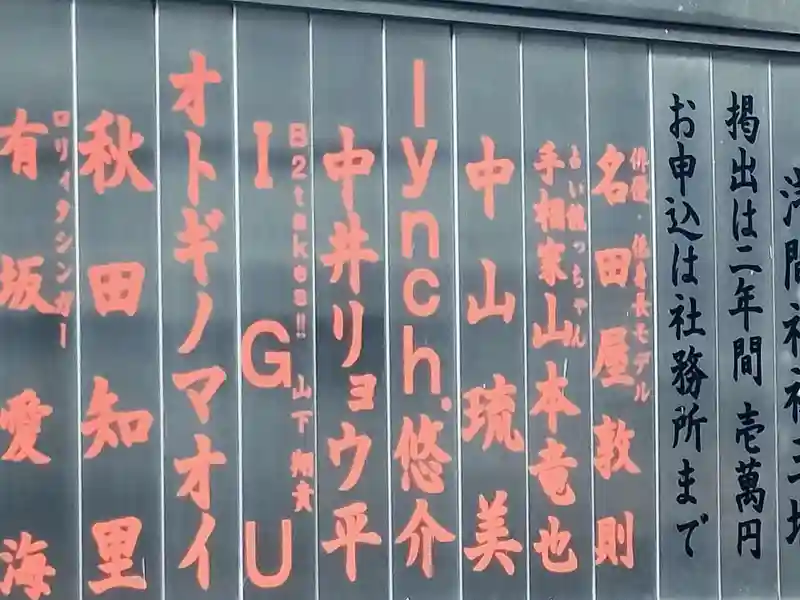 掲出は二年間 壱萬円
お申込は社務所まで
俳優・低身長モデル
名田屋敦則
占い龍っちゃん
手相家山本竜也
中山琉美
lynch.悠介
中井リョウ平
B2takes!! 山下翔太
IGU
オトギノマオイ
秋田知里
ロリィタシンガー
有坂愛海